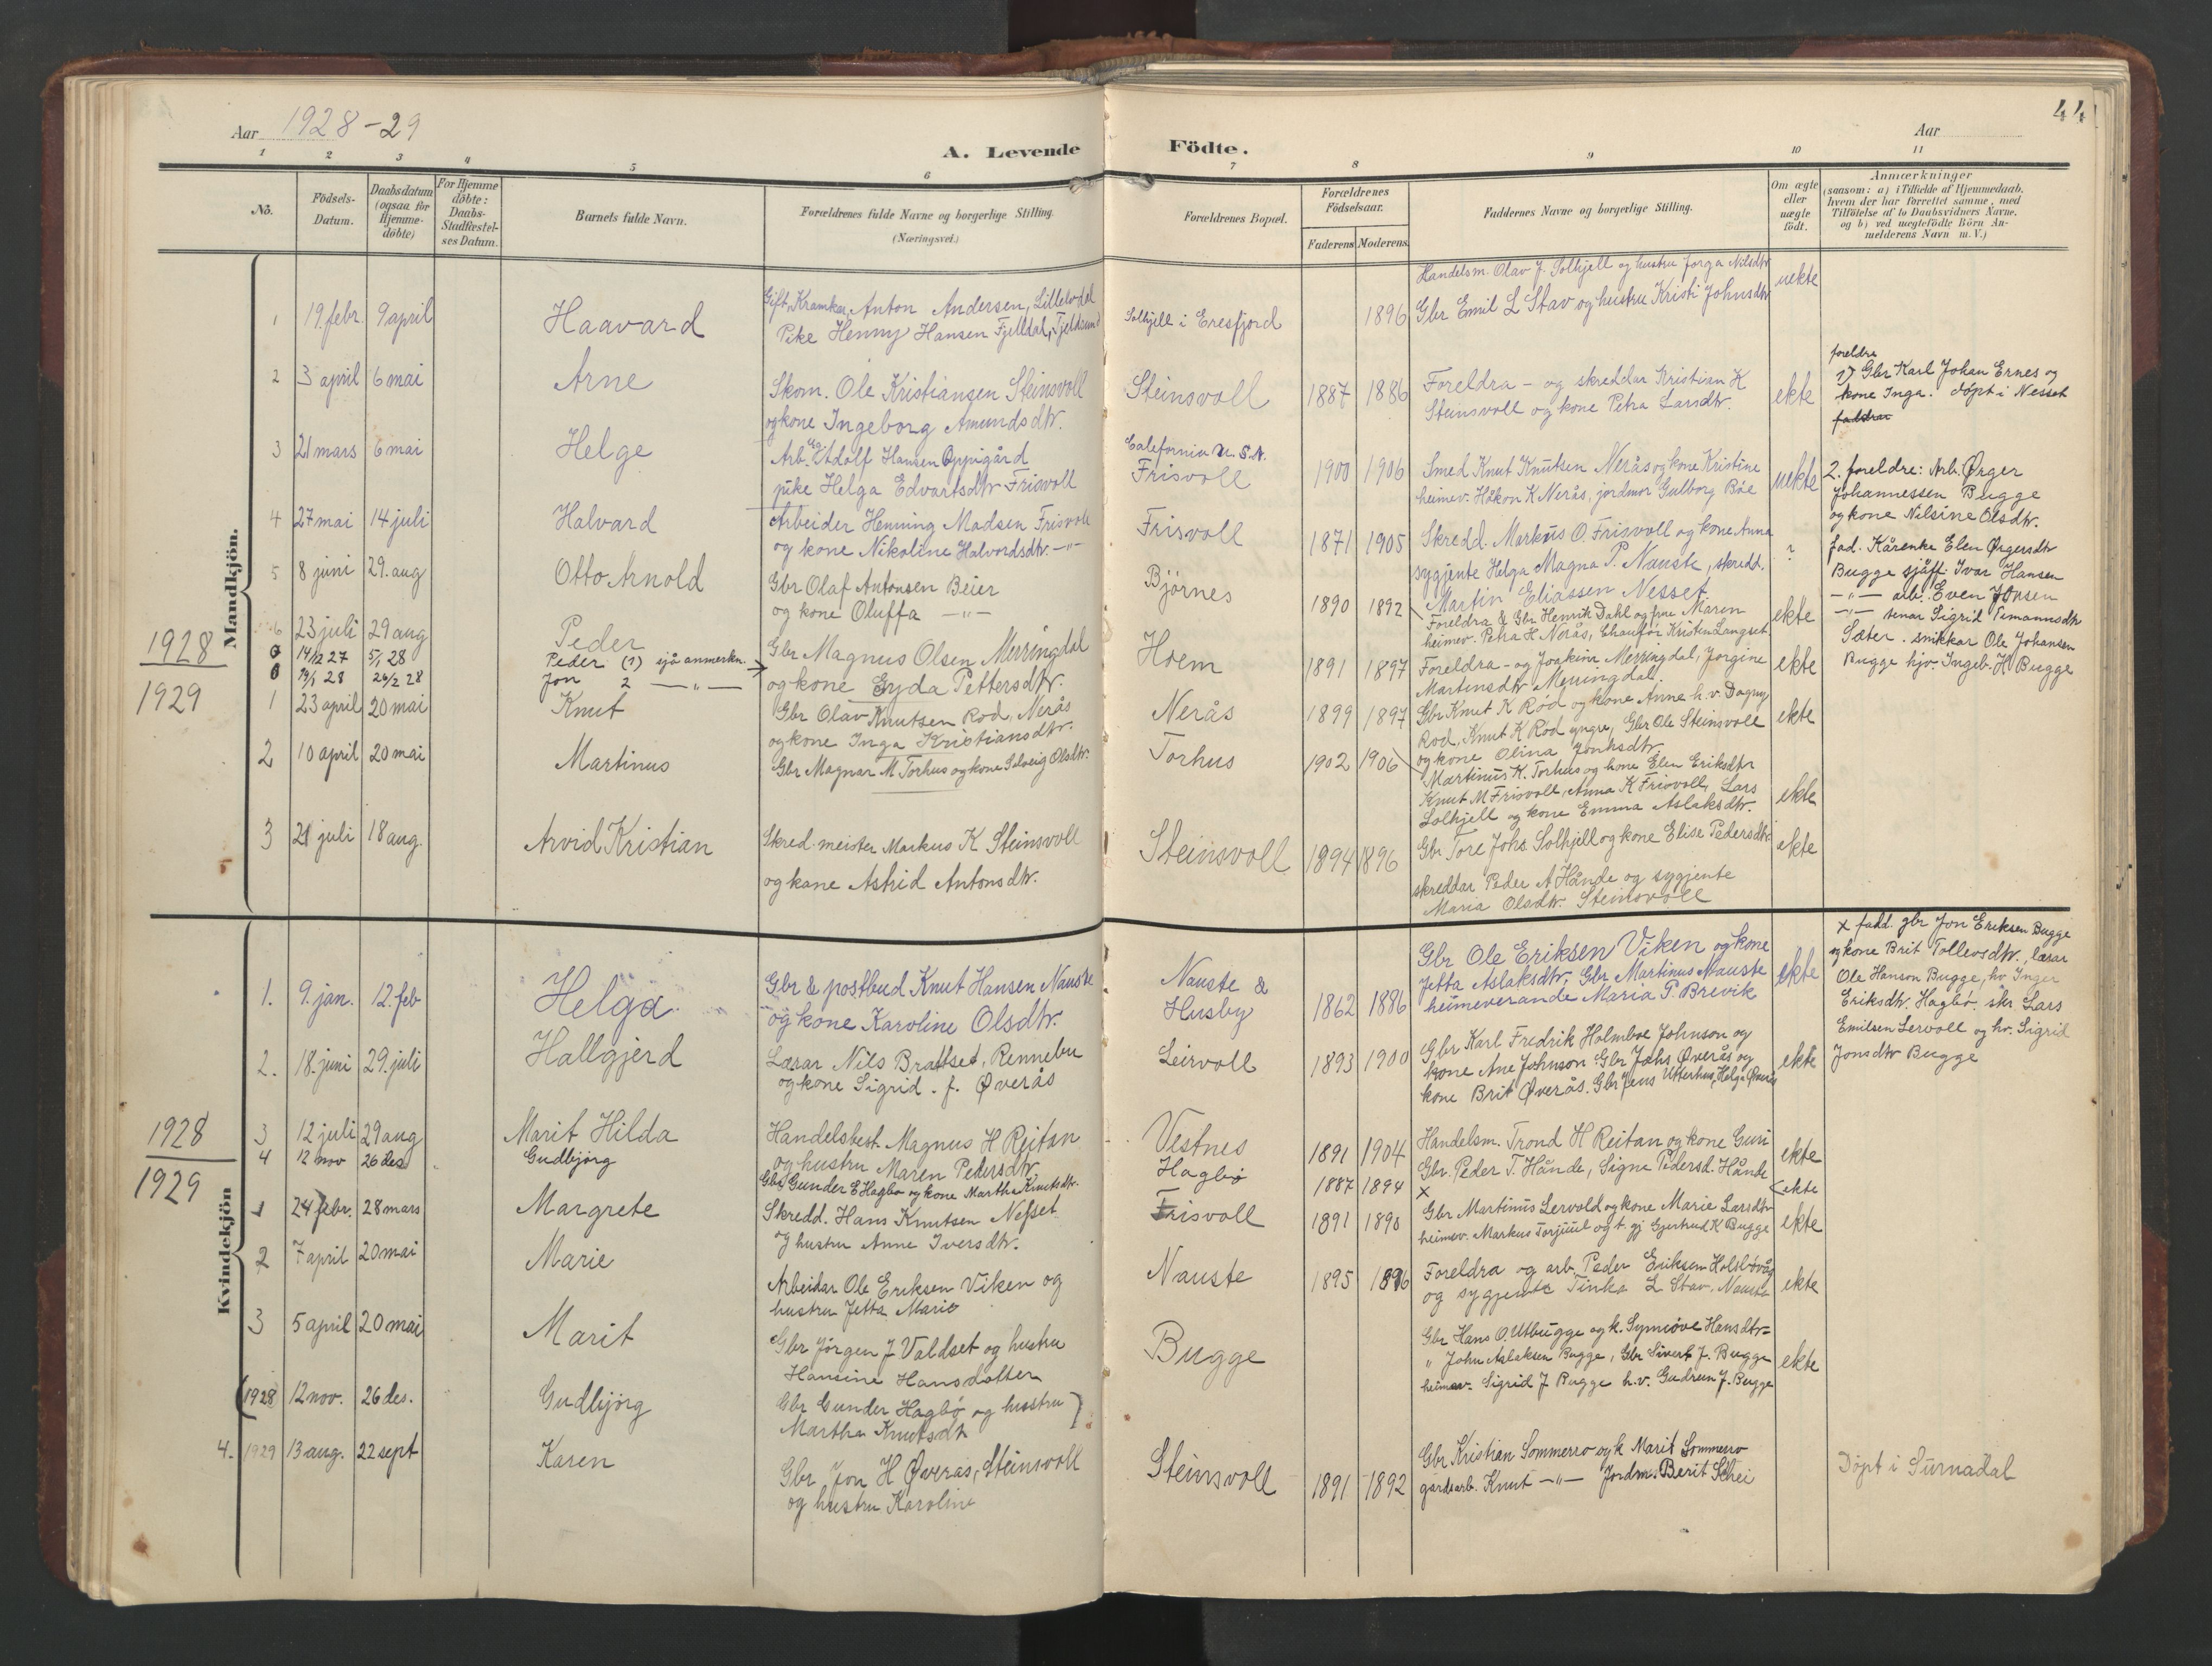 Aar 1928-29
A. Levende
Födte.
Aar
44
1 2 3 4 5 6 7 8 9 10 11
No.
Födsels-
Datum.
Daabsdatum
(ogsaa for
Hjemme-
döbte)
For Hjemme
döbte:
Daabs-
Stadfæstel-
ses Datum.
Barnets fulde Navn.
Forældrenes fulde Navne og borgerlige Stilling.
(Næringsvei.)
Forældrenes Bopæl.
Forældrenes
Födselsaar.
Faderens Moderens
Faddernes Navne og borgerlige Stilling.
Om ægte
eller
uægte
födt.
Anmærkninger
(saasom: a) i Tilfælde af Hjemmedaab,
hvem der har forrettet samme, med
Tilföielse af to Daabsvidners Navne,
og b) ved uægtefödte Börn An-
melderens Navn m. V.)
Mandkjön.
1928
1929
1 19. febr. 9 april Haavard
Gift, Anton Andersen,
Pike Henny Hansen Fjelldal, Tjeldsund
Solhjell i Eresfjord 1896
Handelsm. Olav J. Solhjell og hustru Jorga Nilsdtr
Gbr Emil L Stav og hustru Kristi Johnsdtr
uekte
2 3 april 6 mai Arne
Skom. Ole Kristiansen Steinsvoll
og kone Ingeborg Amundsdtr.
Steinsvoll 1887 1886
Foreldra - og skreddar Kristian K
Steinsvoll og kone Petra Larsdtr.
ekte
3 21 mars 6 mai Helge
Arb. Adolf Hansen Oppigård
pike Helga Edvartsdtr Frisvoll
California U.S.A.
Frisvoll 1900 1906
Smed Knut Knutsen Nerås og kone Kristine
heimev. Håkon K. Nerås, jordmor Gulborg Bøe
uekte
4 27 mai 14 juli Halvard
Arbeider Henning Madsen Frisvoll
og kone Nikoline Halvordsdtr. -"-
Frisvoll 1871 1905
Skredd. Markus O. Frisvoll og kone Anna
sygjente Helga Magna P. Nauste, skredd.
Martin Eliassen Nesset
?
5 8 juni 29. aug Otto Arnold
Gbr Olaf Antonsen Beier
og kone Oluffa -"-
Bjørnes 1890 1892
Foreldra & Gbr Henrik Dahl og frue Maren
heimev. Petra H Nerås, Chauffør Kristen Langset
ekte
6 23 juli 29 aug Peder
Gbr Magnus Olsen Merringdal
og kone Gyda Pettersdtr.
Hoem 1891 1897
Foreldra - og Joakim Merringdal, Jorgine
Martinsdtr Merringdal
ekte
14/12 27 5/1 28 Peder (1) sjå anmerkn.
28 26/2 28 Jon 2 -"-
1 23 april 20 mai Knut
Gbr Olav Knutsen Rød, Nerås
og kone Inga Kristiansdtr.
Nerås 1899 1897
Gbr Knut K Rød og kone Anne h.v. Dagny
Rød, Knut K Rød yngre, Gbr Ole Steinsvoll
og kone Olina
ekte
2 10 april 20 mai Martinus
Gbr Magnar M Torhus og kone Solveig Olsdtr.
Torhus 1902 1906
Martinus K. Torhus og kone Elen Eriksdtr
Knut M Frisvoll, Anna K Frisvoll, Lars
Solhjell og kone Emma Aslaksdtr.
ekte
3 21 juli 18 aug. Arvid Kristian
Skred. meister Markus K Steinsvoll
og kone Astrid Antonsdtr.
Steinsvoll 1894 1896
Gbr Tore Johs Solhjell og kone Elise Pedersdtr
skreddar Peder A Hånde og sygjente
Maria Olsdtr. Steinsvoll
ekte
foreldre
1) Gbr Karl Johan Ernes og
kone Inga. døpt i Nesset
faldrar
2. foreldre: Arb. Ørger
Johannessen Bugge
og kone Nilsine Olsdtr.
fad. Kårenke Elen Ørgersdtr
Bugge sjåff. Ivar Hansen
-"- arb. Even Jonsen
-"- tenar Sigrid Temannsdtr
Sæter. snikkar Ole Johansen
Bugge hjv. Ingeb. H Bugge
Kvindekjön
1928
1929
1. 9. jan. 12. feb Helga
Gbr & postbud Knut Hansen Nauste
og kone Karoline Olsdtr.
Nauste &
Husby 1862 1886
Gbr Ole Eriksen Viken og kone
Jetta Aslaksdtr, Gbr Martinus Nauste
heimeverande Maria P. Brevik
ekte
2. 18. juni 29. juli Hallgjerd
Lærar Nils Brattset, Rennebu
og kone Sigrid. f. Øverås
Leirvoll 1893 1900
Gbr Karl Fredrik Holmboe Johnson og
kone Ane Johnson. Gbr Johs Øverås og
kone Brit Øverås. Gbr Jens Utterhus, Helga Øverås
ekte
3 12 juli 29 aug Marit Hilda
Handelsbest. Magnus H Reitan
og hustru Maren Pedersdtr.
Vestnes 1891 1904
Handelsm. Trond H Reitan og kone Guri
Gbr. Peder T. Hånde, Signe Pedersd. Hånde
ekte
4 12 nov 26 des Gudbjörg
Gbr Gunder E Hagbø og kone Martha Knutsdtr.
Hagbø 1887 1894 x ekte
1 24 febr. 28 mars Margrete
Skredd. Hans Knutsen Nesset
og hustru Anne Iversdtr.
Frisvoll 1891 1890
Gbr Martinus Lervold og kone Marie Larsdtr
heimev. Markus Torjuul og t. gj Gjertrud K Bugge
ekte
2 7 april 20 mai Marie
Arbeidar Ole Eriksen Viken og
hustru Jetta Marie
Nauste 1895 1896
Foreldra og arb. Peder Eriksen Holsbøvåg
og sygjente Tinka L Stav, Nauste
ekte
3 5 april 20 mai Marit
Gbr Jörgen J Valdset og hustru
Hansine Hansdotter
Bugge
Gbr Hans O. Utbugge og k. Synnöve Hansdtr
" John Aslaksen Bugge, Gbr Sivert J. Bugge
heimev. Sigrid J Bugge h.v. Gudrun J. Bugge
ekte
(1928 12 nov. 26 des. Gudbjörg
Gbr Gunder Hagbø og hustru )
Martha Knutsdt
4. 1929 13 aug. 22 sept Karen
Gbr Jon H Øverås, Steinsvoll
og hustru Karoline
Steinsvoll 1891 1892
Gbr Kristian Sommerro og k Marit Sommerro
gardsarb. Knut -"- Jordm. Berit Schei
Döpt i Surnadal
x fadd. gbr Jon Eriksen Bugge
og kone Brit Tollevsdtr., lærar
Ole Hanson Bugge, hv. Inger
Eriksdtr. Hagbø. skr. Lars
Emilsen Lervoll og hv. Sigrid
Jonsdtr Bugge